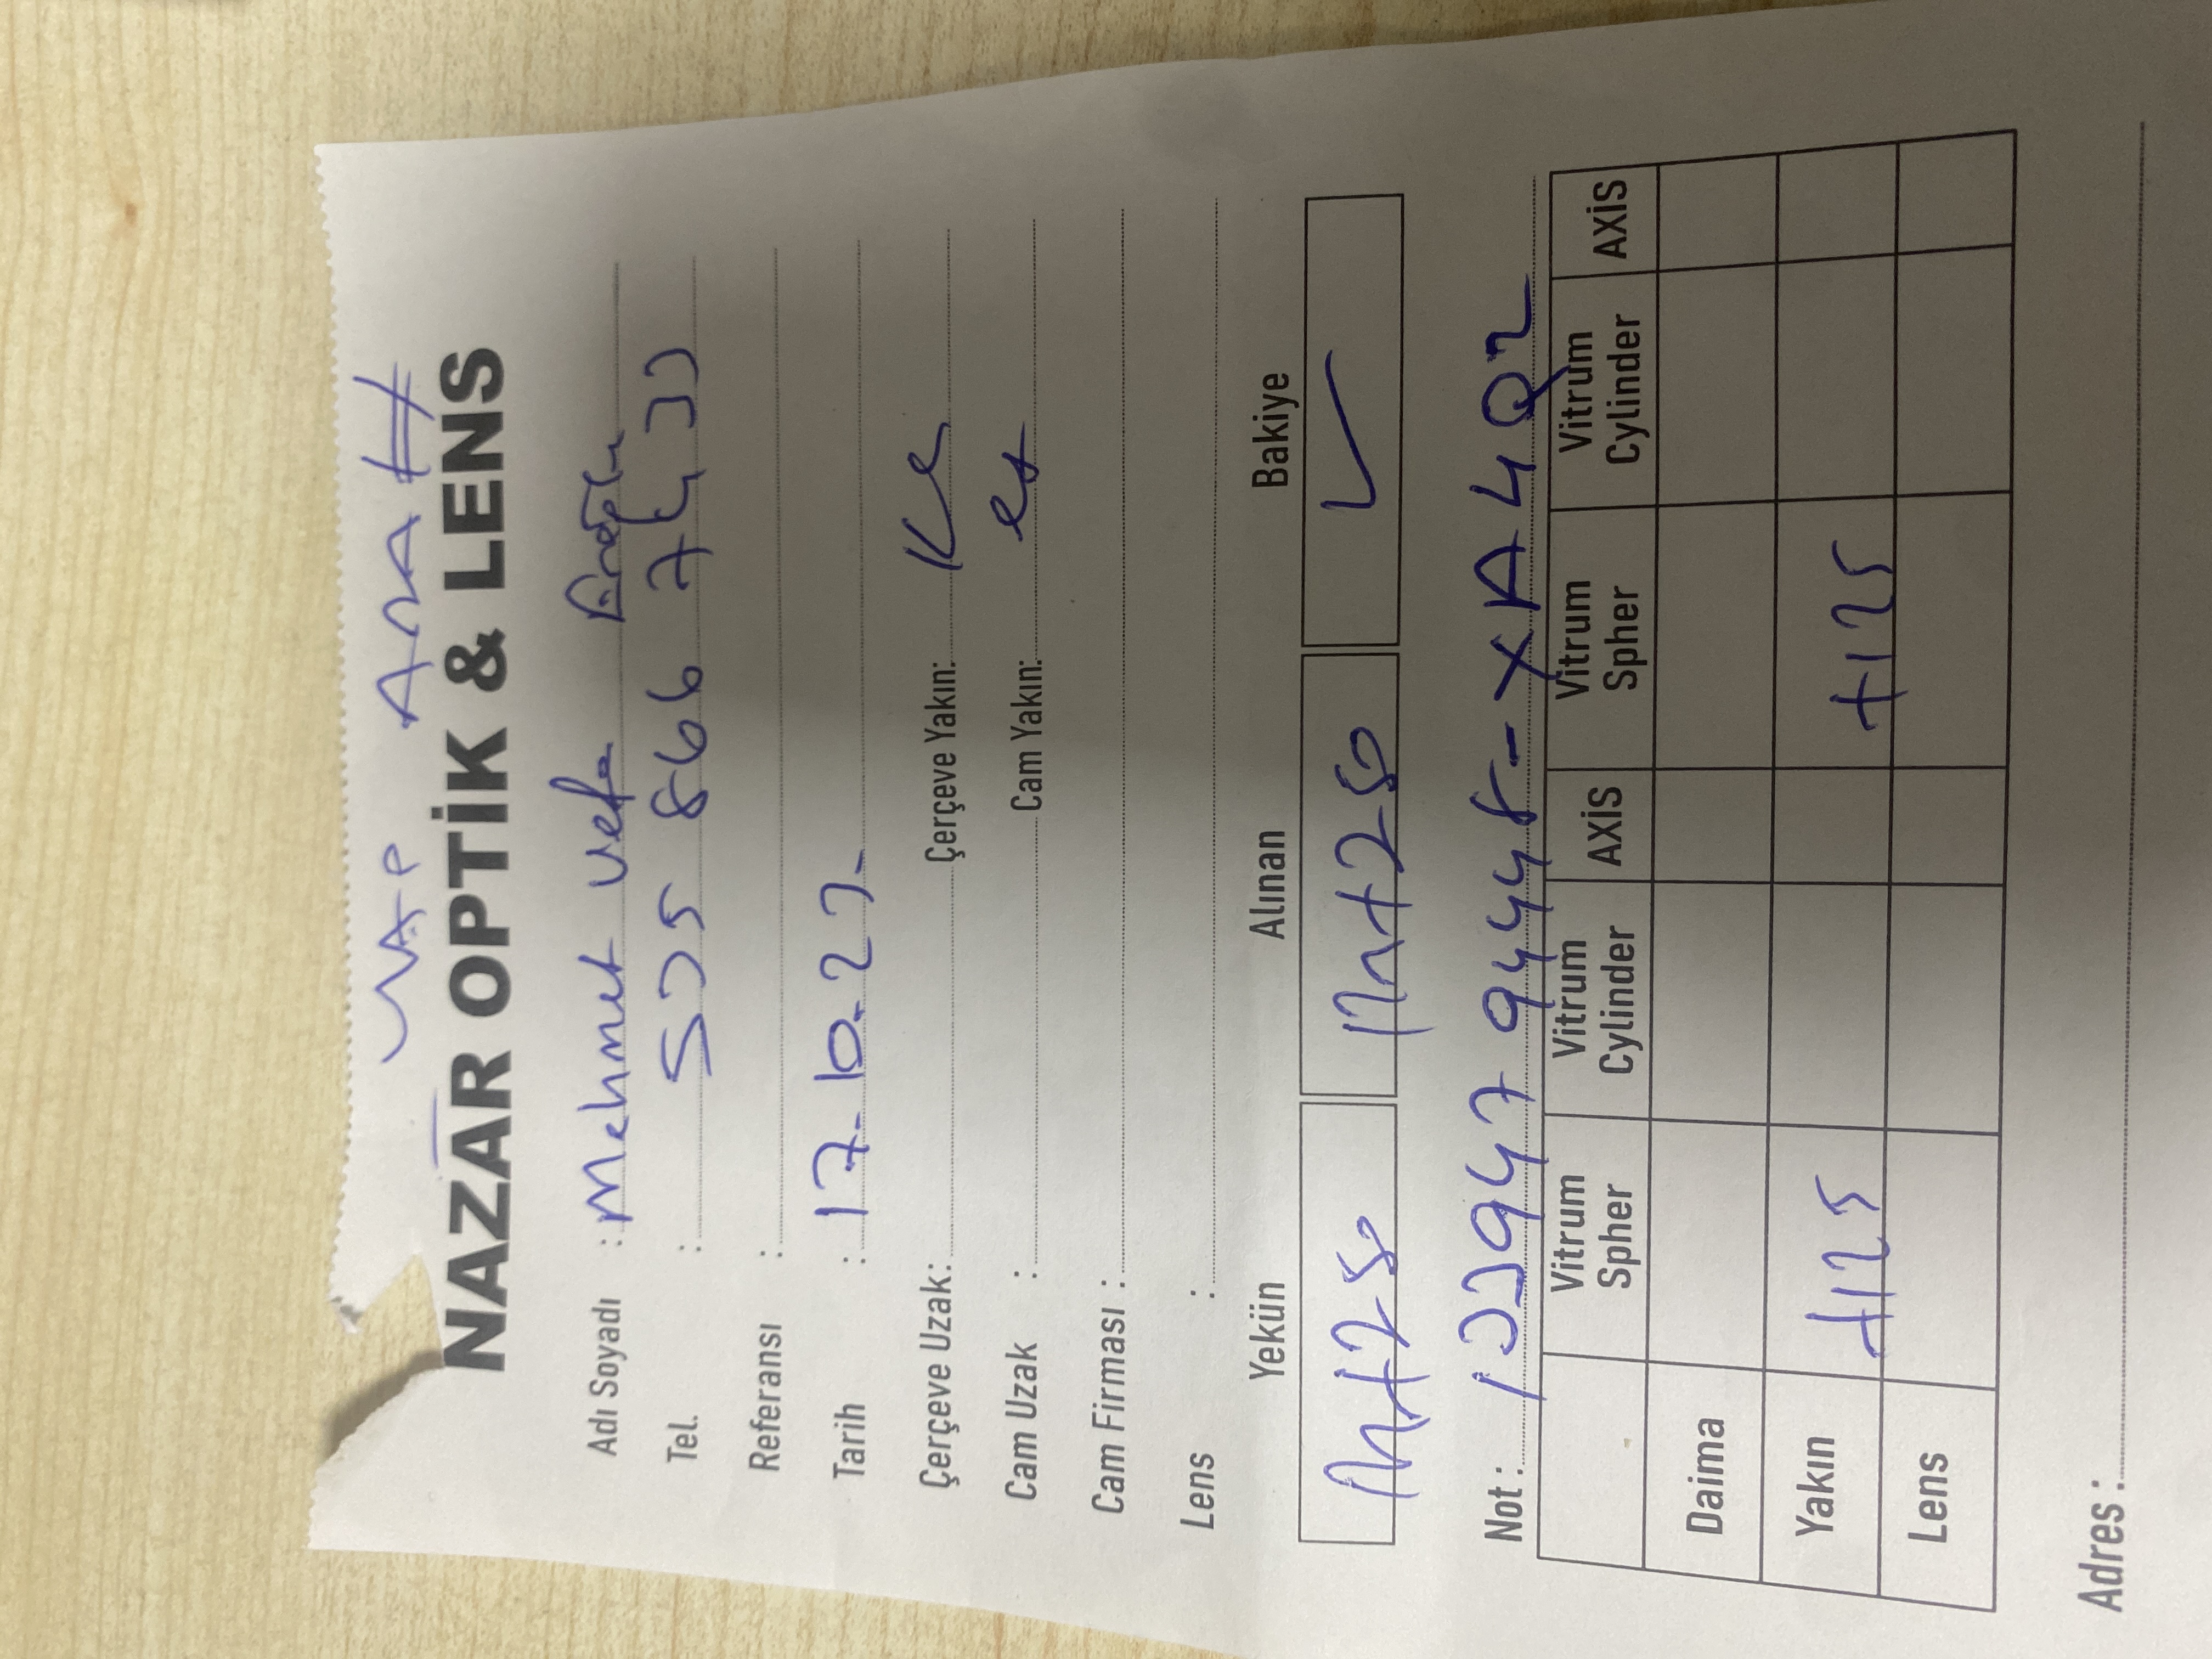 YAP ARA #
NAZAR OPTİK & LENS
Adı Soyadı : Mehmet Vefa Eroğlu
Tel. : 535 866 74 33
Referansı :
Tarih : 17.10.23.
Çerçeve Uzak: Çerçeve Yakın:
Cam Uzak : Cam Yakın:
Cam Firması :
Lens :
Yekün Alınan Bakiye
+250 +250 ✓
Not : 13394794448-XA4Q2
Vitrum Spher Vitrum Cylinder AXİS Vitrum Spher Vitrum Cylinder AXİS
Daima
Yakın +125 +125
Lens
Adres :